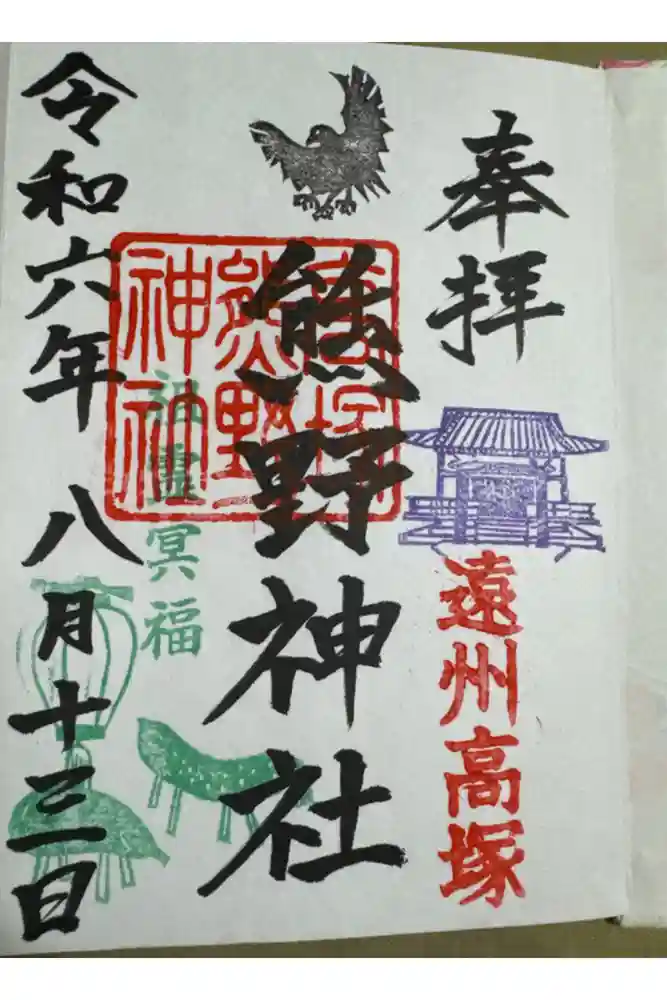 奉拝
遠州高塚
熊野神社
高塚
熊野
神社
祖霊冥福
令和六年 八月十三日